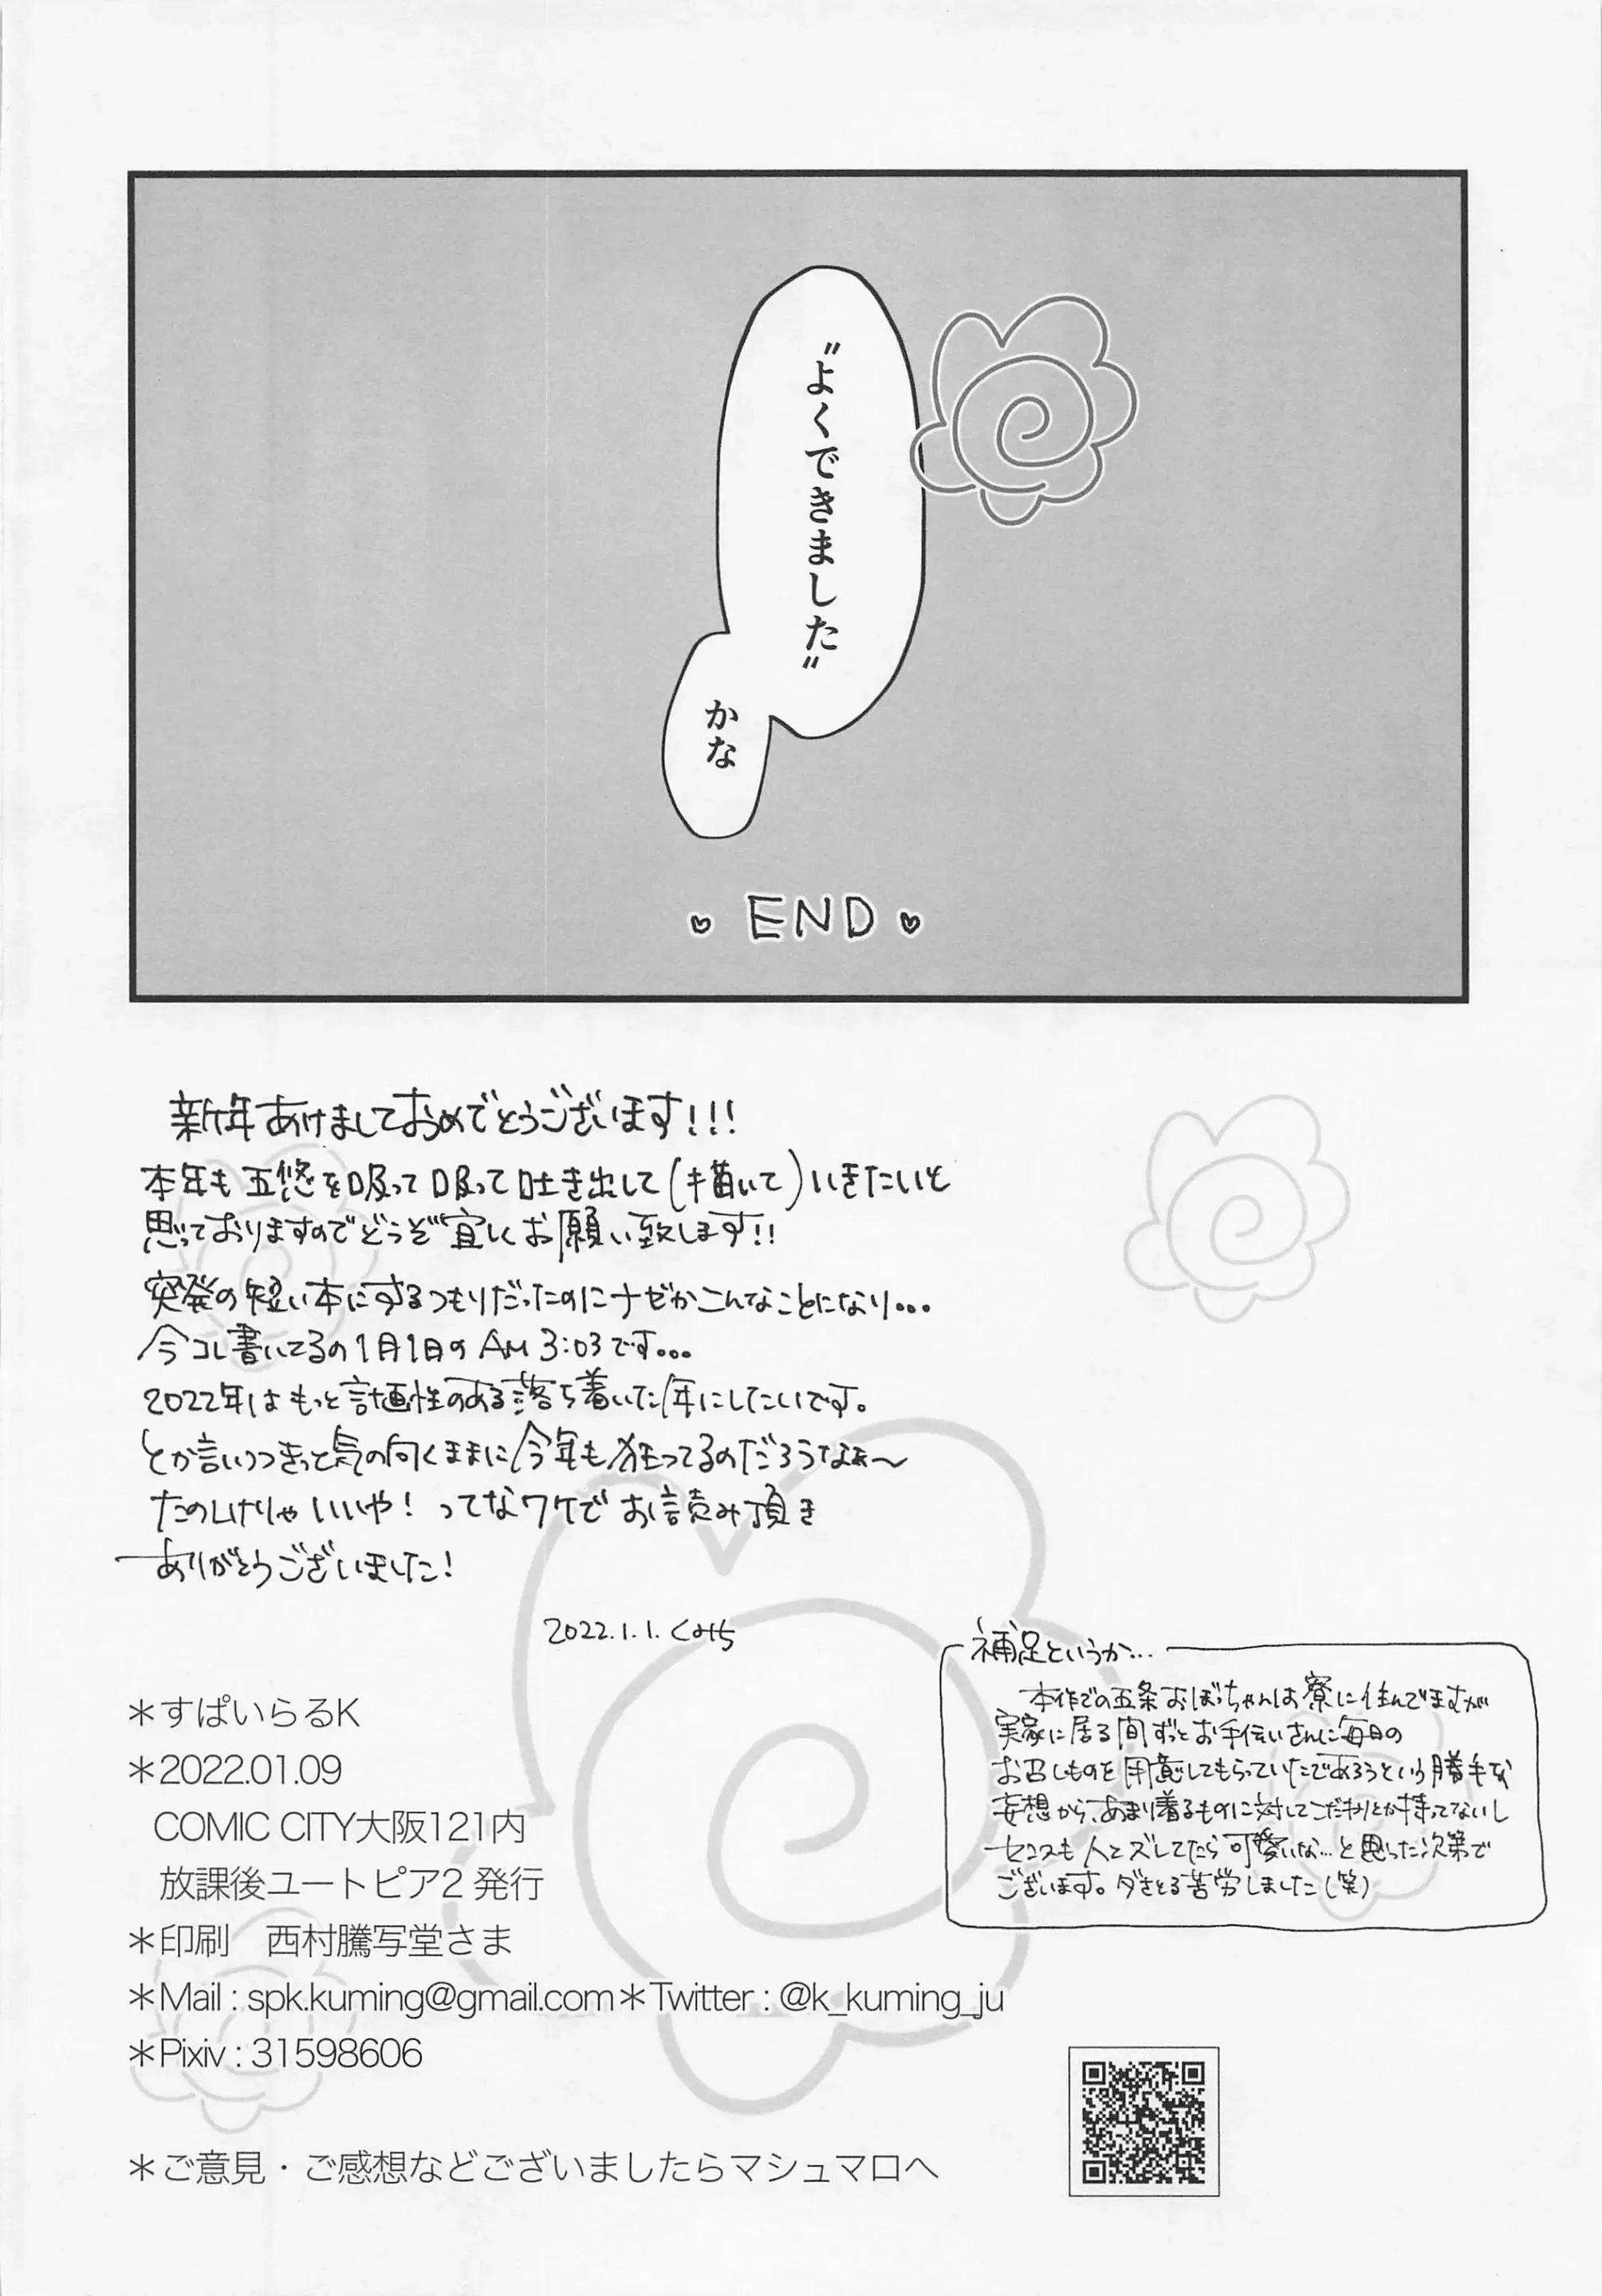 “よくできました”
かな
END
新年あけましておめでとうございます!!!
本年も五悠を吸って吸って吐き出して(描いて)いきたいと
思っておりますのでどうぞ宜しくお願い致します!!
突発の短い本にするつもりだったのにナゼかこんなことになり…
今コレ書いてるの1月1日のAM 3:03です…
2022年はもっと計画性のある落ち着いた年にしたいです。
とか言いつつきっと気の向くままに今年も狂ってるのだろうなぁ〜
たのしけりゃいいや! ってなワケでお読み頂き
ありがとうございました!
2022.1.1. くみち
補足というか…
本作での五条おぼっちゃんは寮に住んでますが
実家に居る間ずっとお手伝いさんに毎日の
お召しものを用意してもらっていたであろうという勝手な
妄想から、あまり着るものに対してこだわりとか持ってないし
センスも人とズレてたら可愛いな…と思った次第で
ございます。ダサとる苦労しました(笑)
＊すぱいらるK
＊2022.01.09
COMIC CITY大阪121内
放課後ユートピア2 発行
＊印刷　西村謄写堂さま
＊Mail : spk.kuming@gmail.com＊Twitter : @k_kuming_ju
＊Pixiv : 31598606
＊ご意見・ご感想などございましたらマシュマロへ